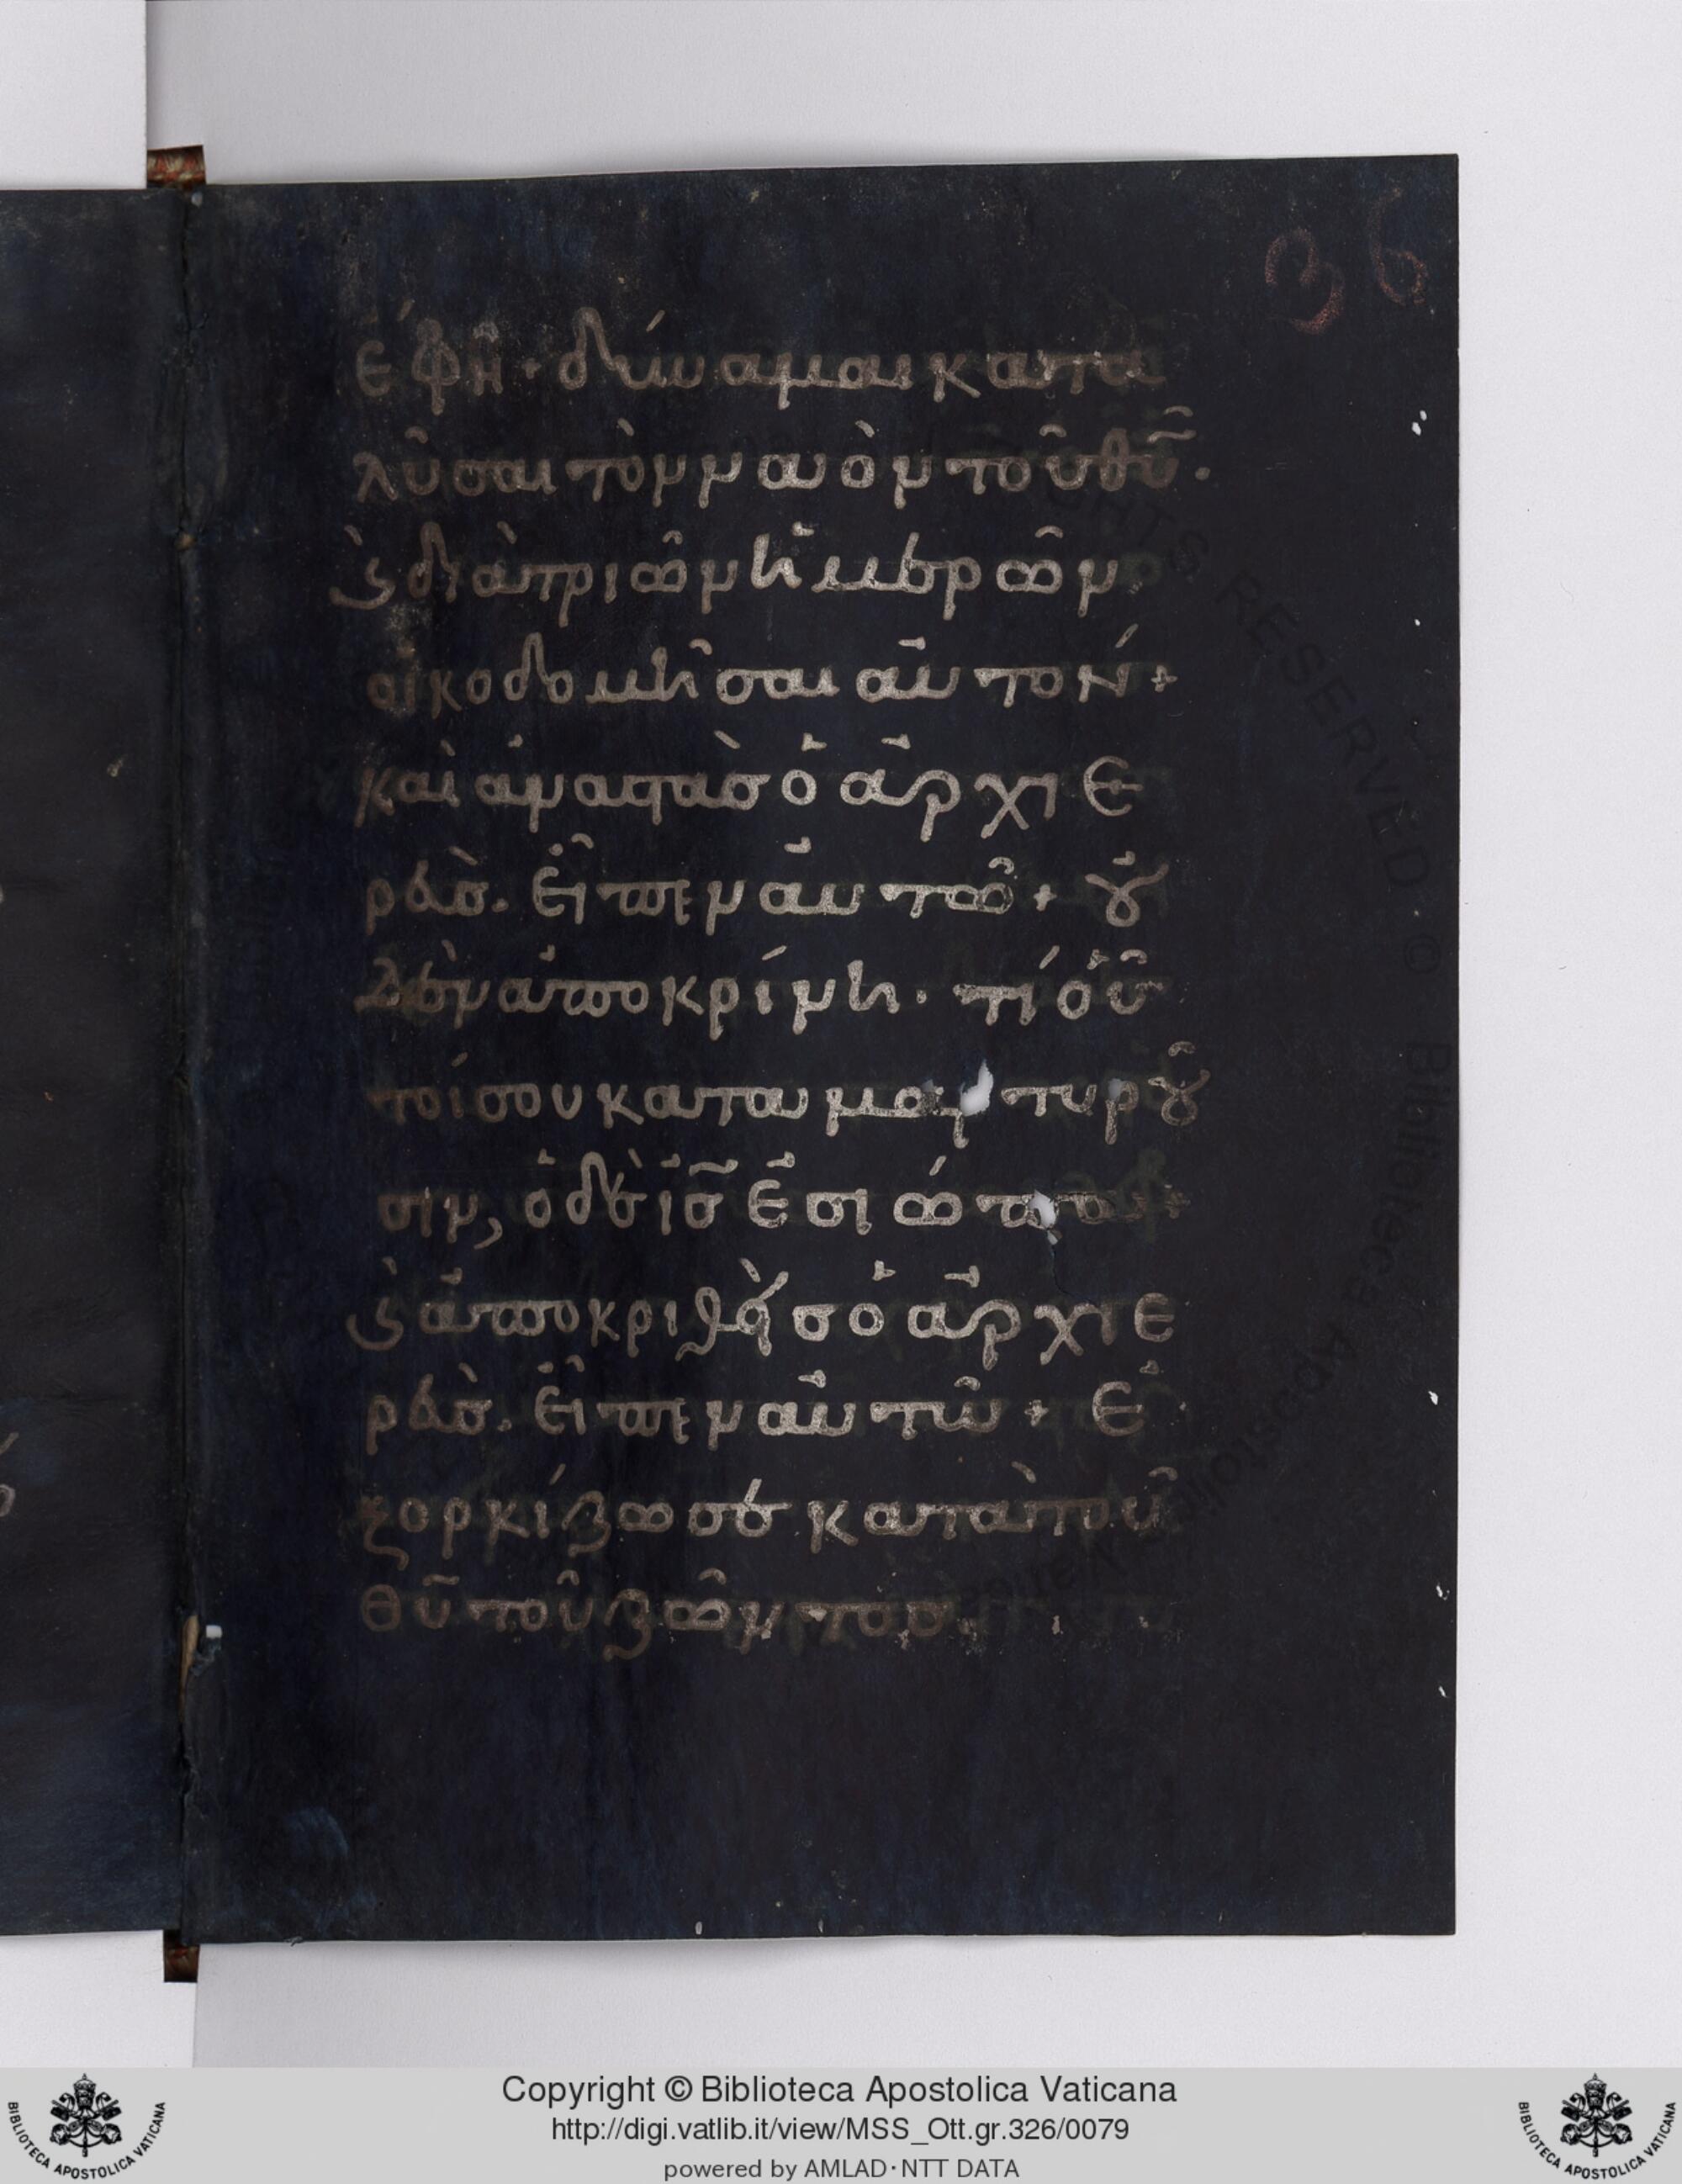 36
ἔφη· δύναμαι κατα
λῦσαι τὸν ναὸν τοῦ θῦ·
ϛ διὰ τριῶν ἡμερῶν
οἰκοδομῆσαι αὐτόν+
καὶ ἀναστὰσ ὁ ἀρχιε
ρεὺσ. εἶπεν αὐτῶ+ οὐ
δὲν ἀποκρίνη· τί οὗ
τοί σου καταμαρτυροῦ
σιν, ὁ δὲ ἰσ ἐσιώπα+
ϛ ἀποκριθεὶσ ὁ ἀρχιε
ρεὺσ. εἶπεν αὐτῶ+ ἐ
ξορκίζω σε κατὰ τοῦ
θῦ τοῦ ζῶντοσ.
RIGHTS RESERVED © Biblioteca Apostolica Vaticana
Copyright © Biblioteca Apostolica Vaticana
http://digi.vatlib.it/view/MSS_Ott.gr.326/0079
powered by AMLAD·NTT DATA
BIBLIOTECA APOSTOLICA VATICANA
BIBLIOTECA APOSTOLICA VATICANA